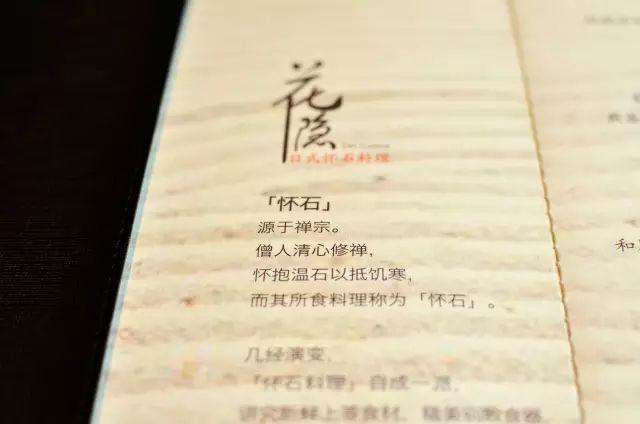 花隐
日式怀石料理
「怀石」
源于禅宗。
僧人清心修禅，
怀抱温石以抵饥寒，
而其所食料理称为「怀石」。
几经演变，
「怀石料理」自成一派，
讲究新鲜上等食材，精美别致食器，
和